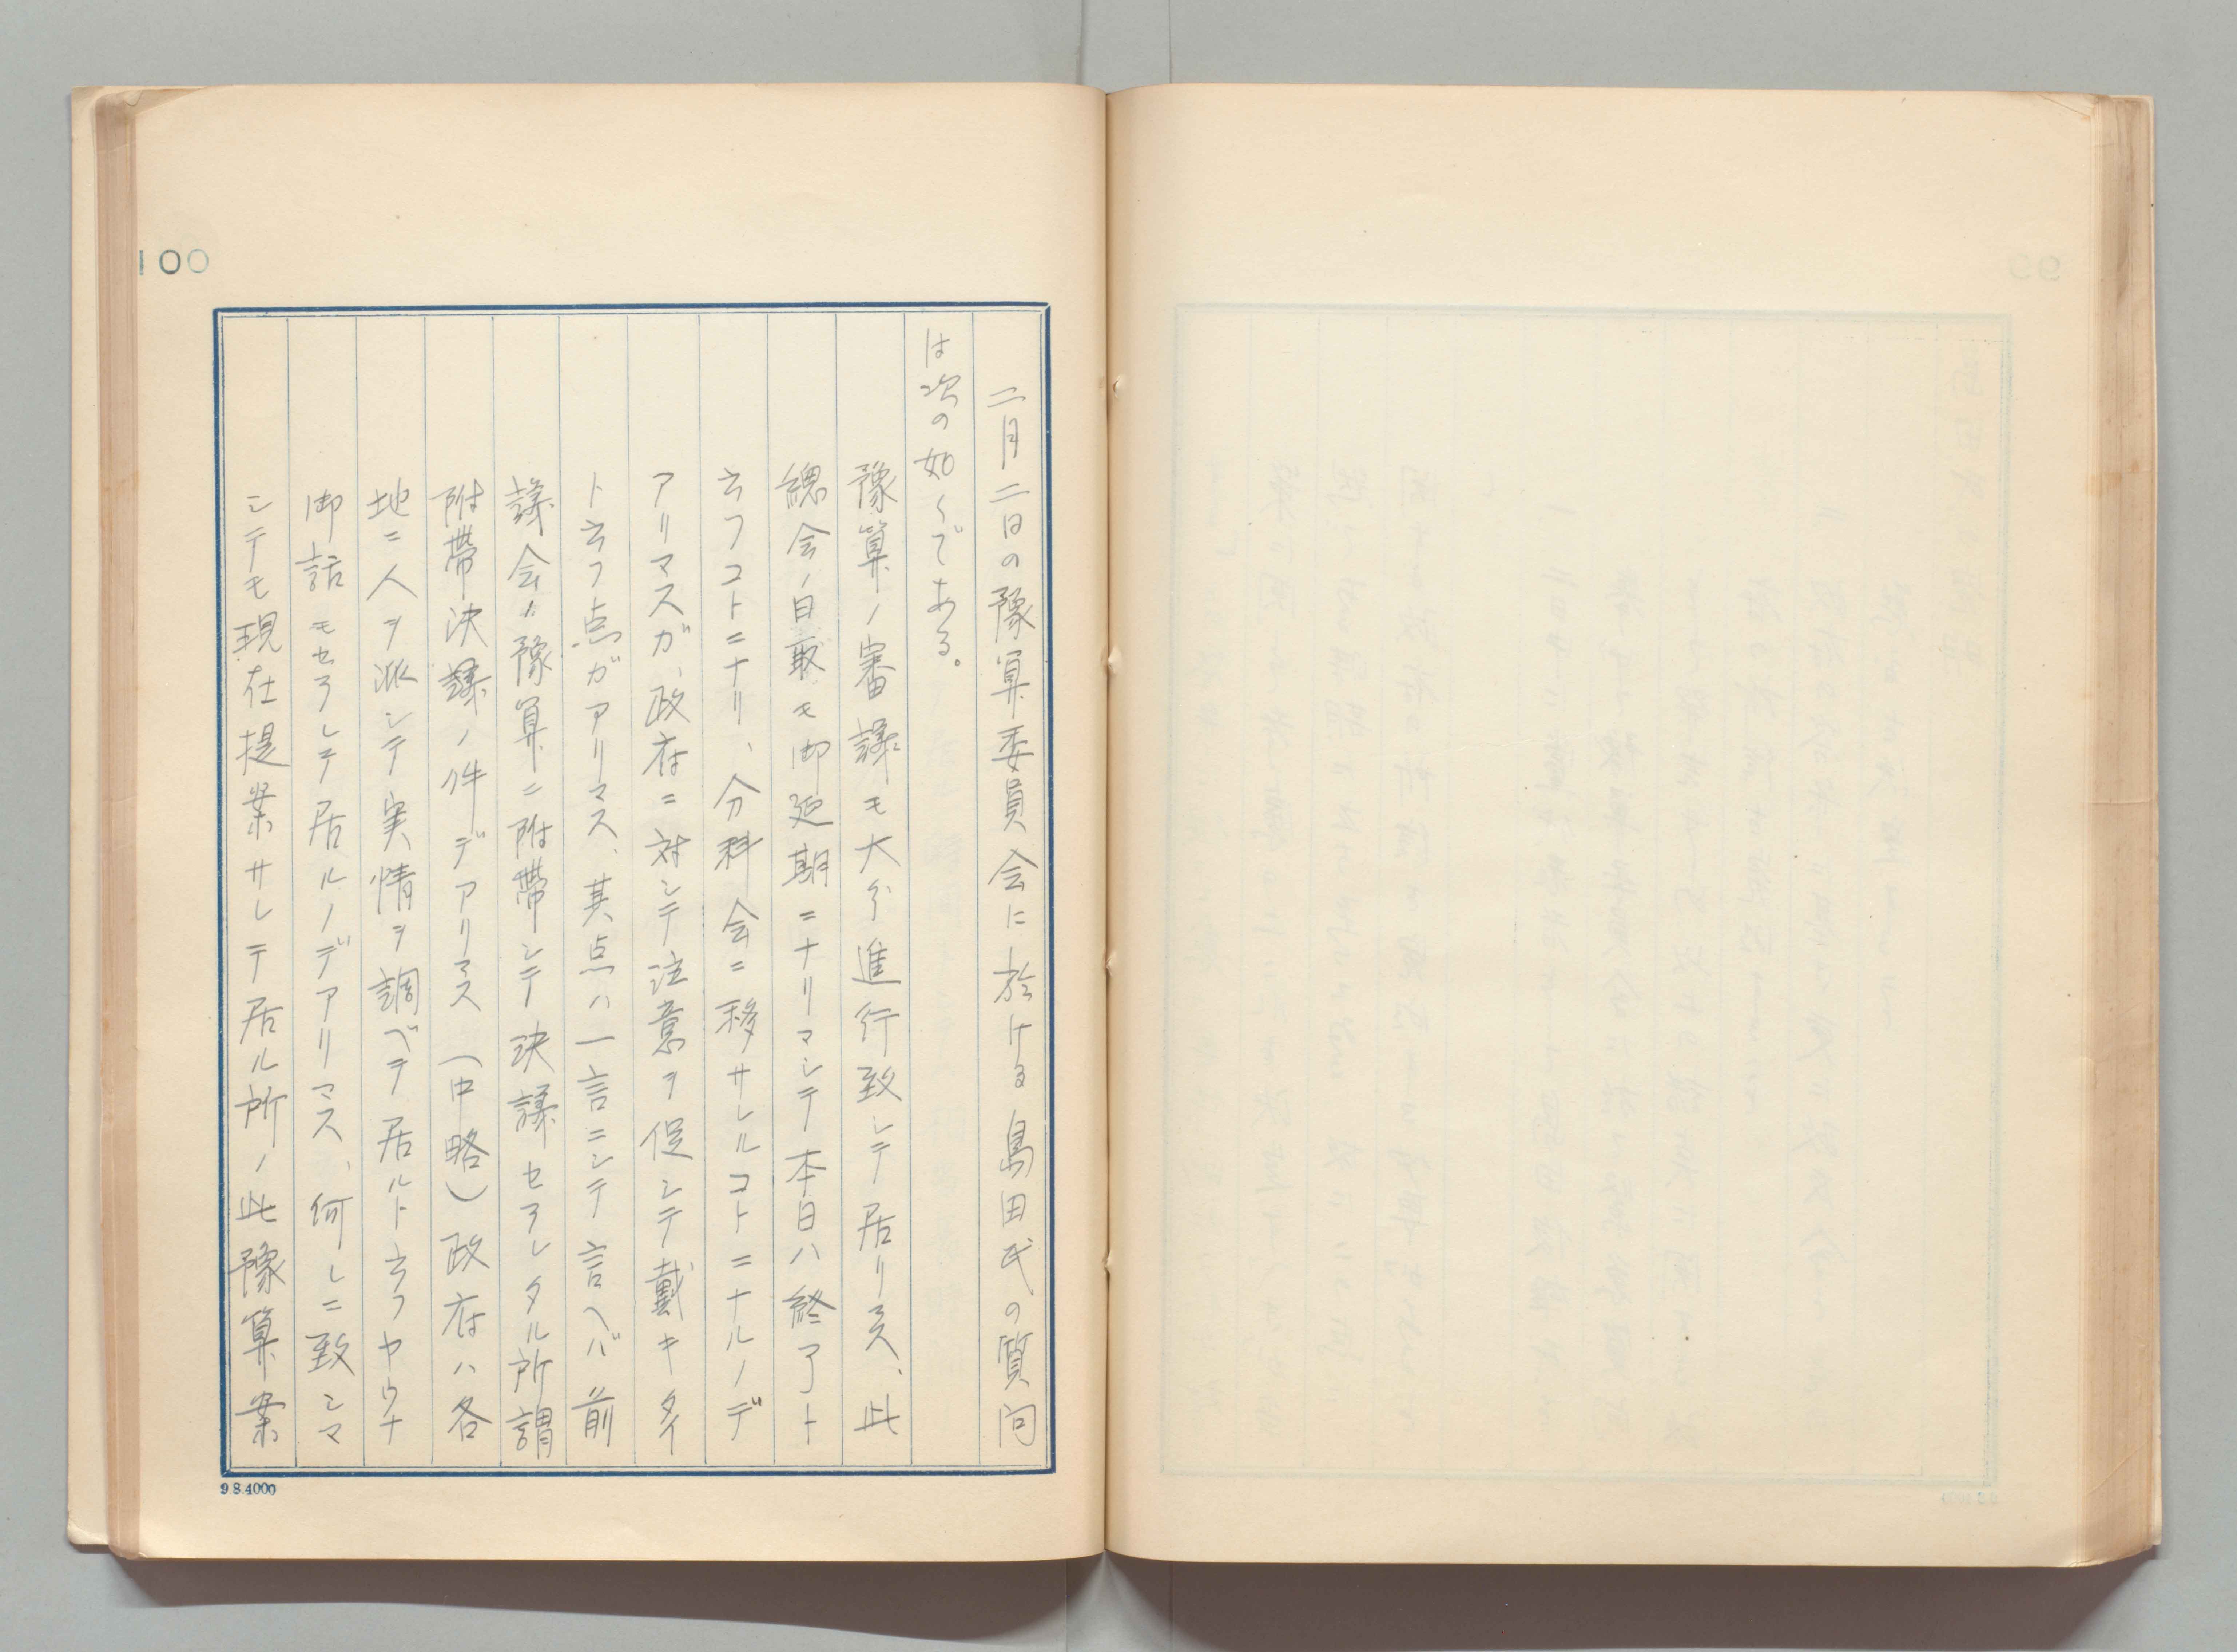 100
二月二日の豫算委員会に於ける島田氏の質问
は次の如くである。
豫算ノ審議モ大分進行致シテ居リマス、此
總会ノ日取モ御延期ニナリマシテ本日ハ終了ト
云フコトニナリ、分科会ニ移サレルコトニナルノデ
アリマスガ、政府ニ対シテ注意ヲ促シテ戴キタイ
ト云フ点ガアリマス、其点ハ一言ニシテ言ヘバ前
議会ノ豫算ニ附帶シテ決議セラレタル所謂
附帶決議ノ件デアリマス（中略）政府ハ各
地ニ人ヲ派シテ実情ヲ調ベテ居ルト云フヤウナ
御話モセラレテ居ルノデアリマス、何レニ致シマ
シテモ現在提案サレテ居ル所ノ此豫算案
98.4000